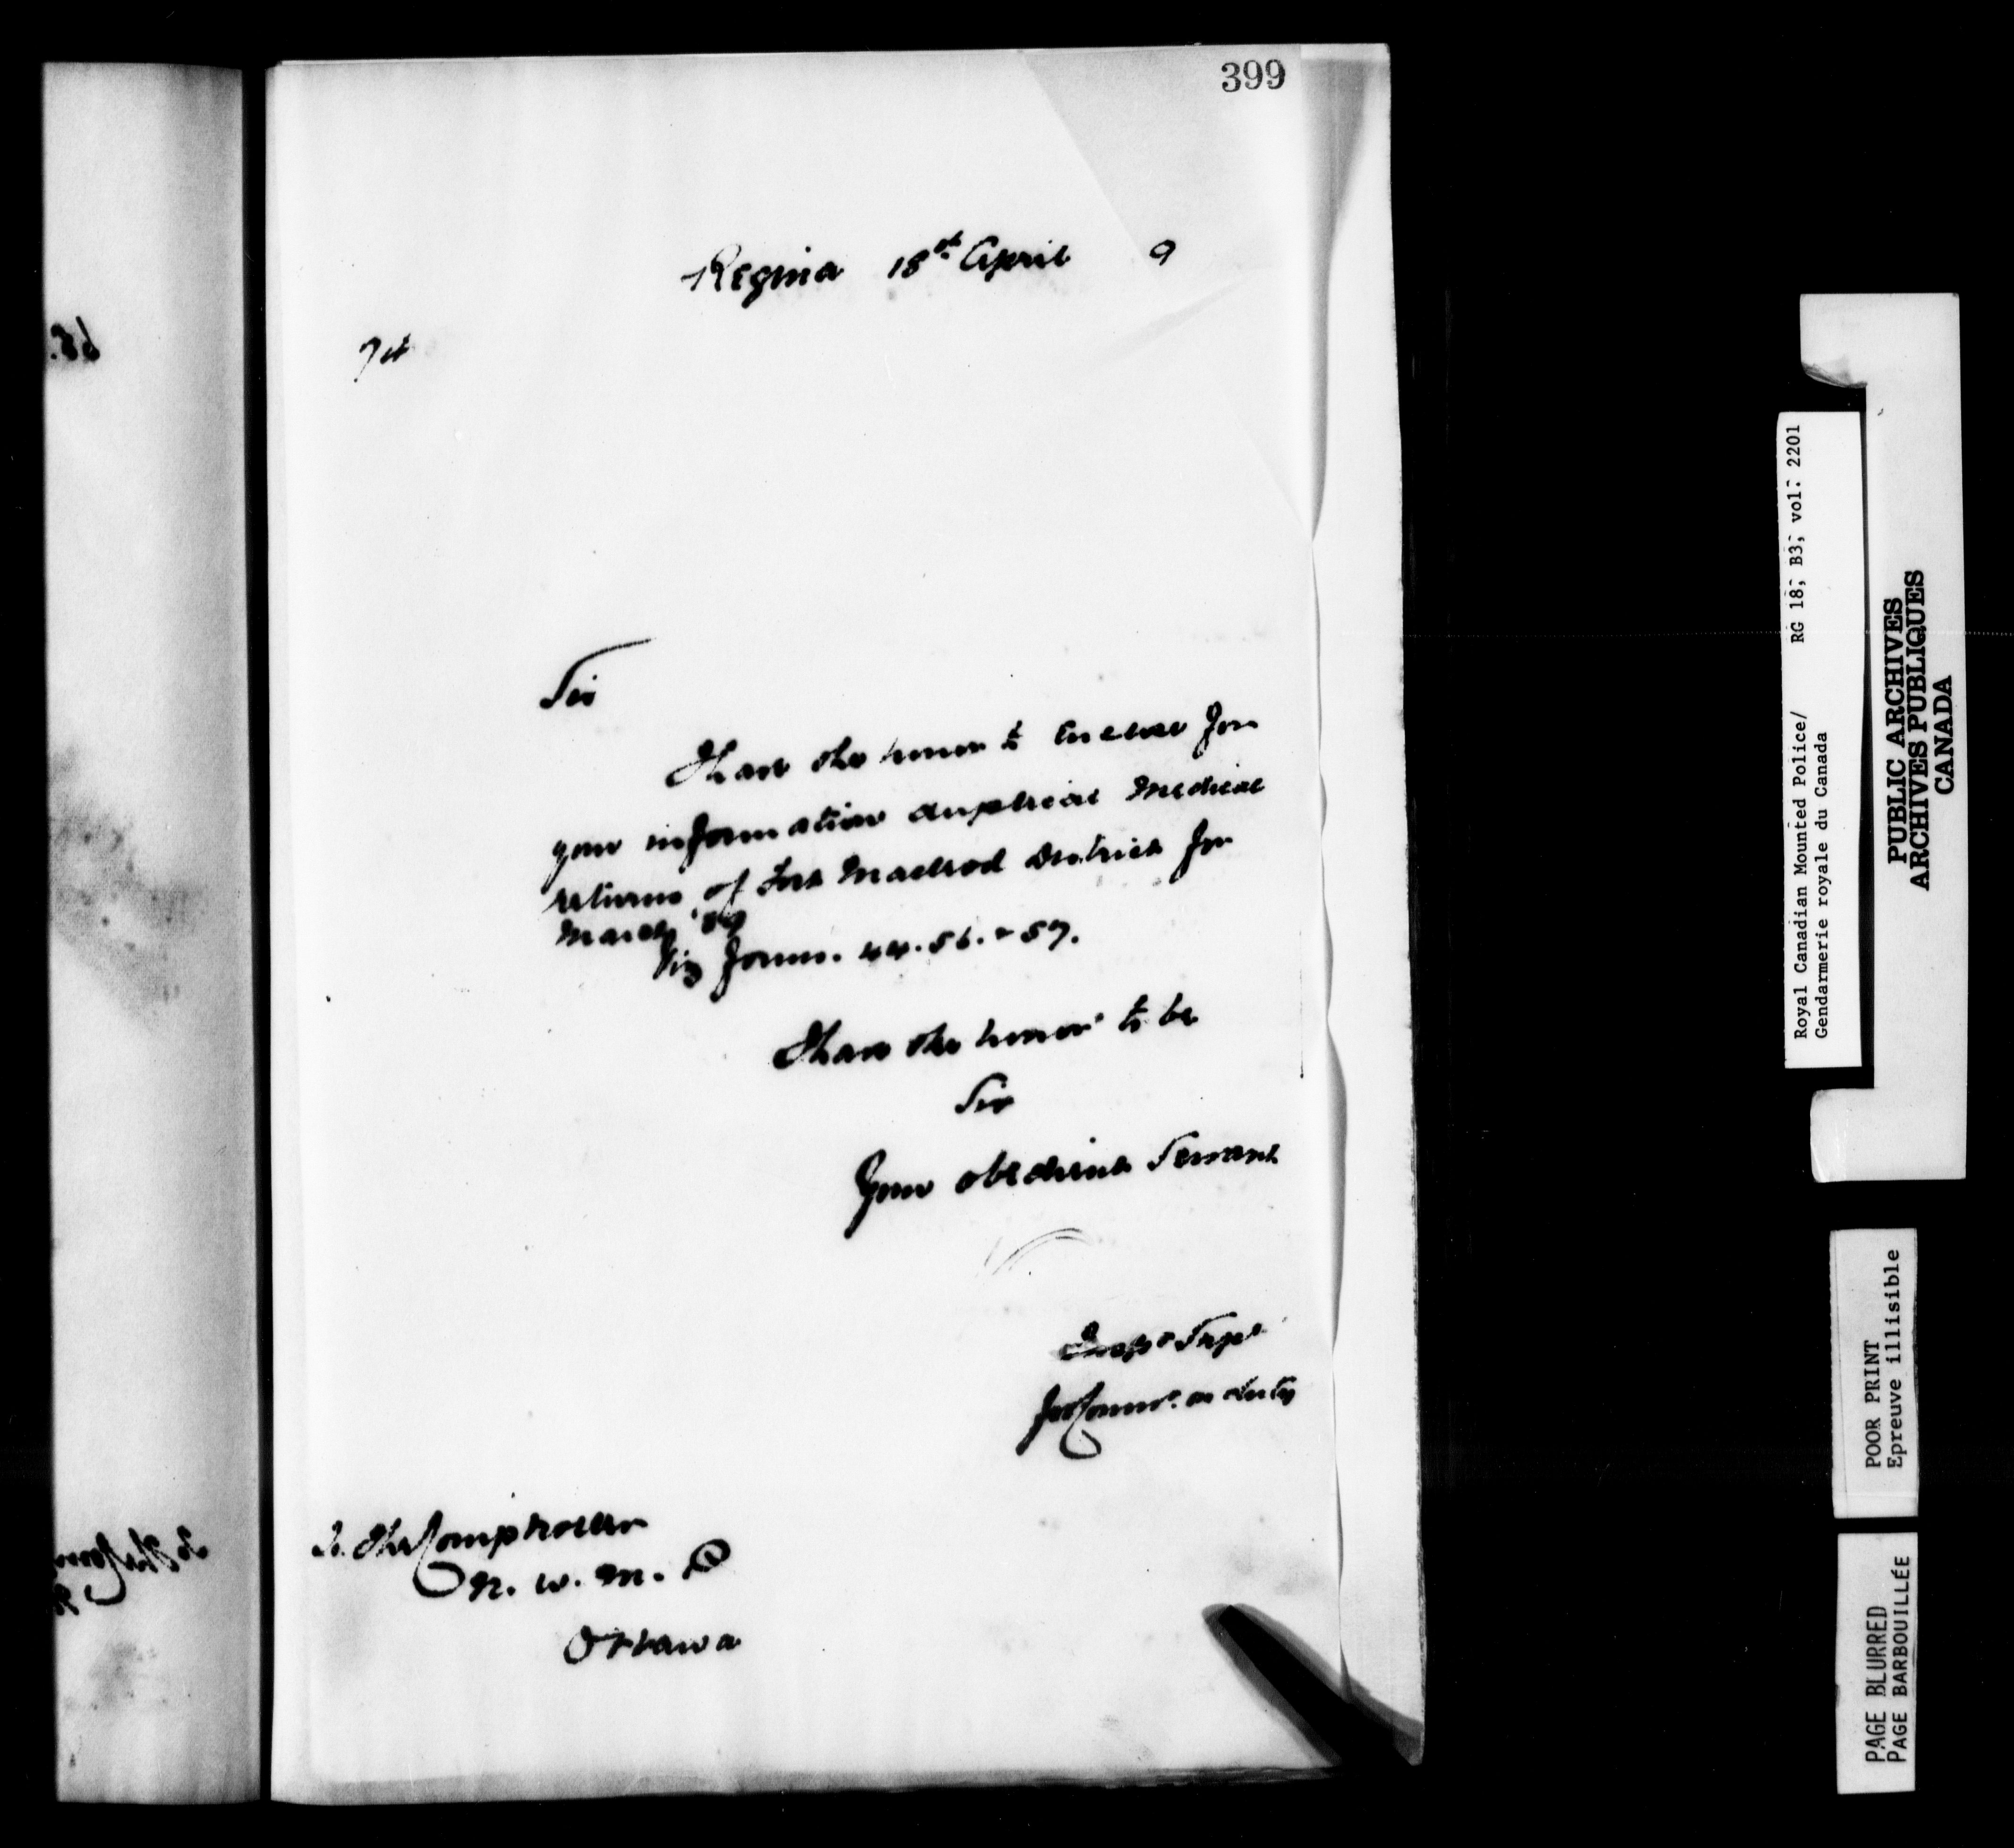 399
Regina 18th April 9
Sir
I have the honor to enclose for
your information duplicate Medical
returns of Fort Macleod District for
March '89
Viz forms. 44. 56. & 57.
I have the honor to be
Sir
Your obedient Servant
Supt
for Commr. on duty
To The Comptroller
N. W. M. P
Ottawa
Royal Canadian Mounted Police/ RG 18, B3, vol: 2201
Gendarmerie royale du Canada
PUBLIC ARCHIVES
ARCHIVES PUBLIQUES
CANADA
POOR PRINT
Epreuve illisible
PAGE BLURRED
PAGE BARBOUILLÉE